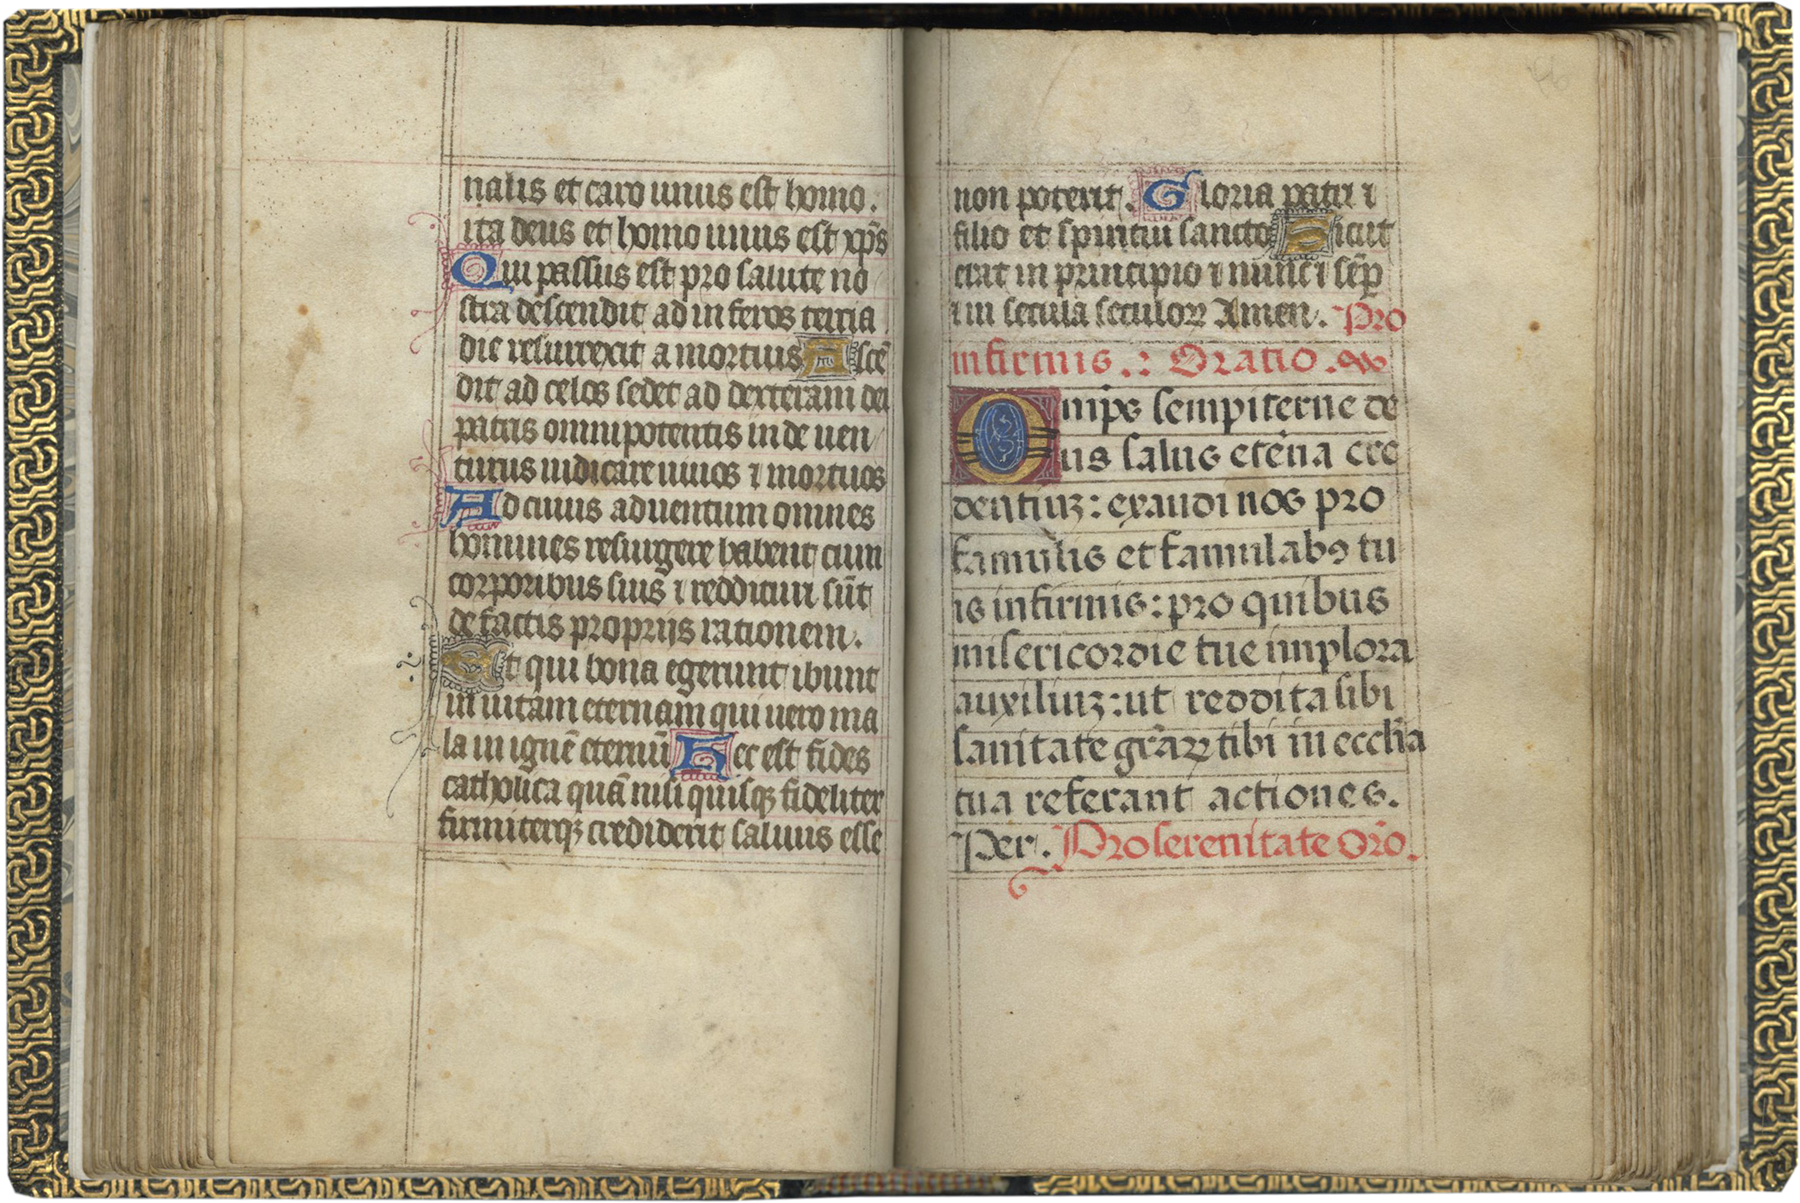 nalis et caro unus est homo.
ita deus et homo unus est xp̄s
Qui passus est pro salute no
stra descendit ad inferos tercia
die resurrexit a mortuis Ascē
dit ad celos sedet ad dexteram dei
patris omnipotentis inde uen
turus iudicare uiuos ⁊ mortuos
Ad cuius aduentum omnes
homines resurgere habent cum
corporibus suis ⁊ reddituri sūt
de factis proprijs rationem.
Et qui bona egerunt ibunt
in uitam eternam qui uero ma
la in ignē eternū Hec est fides
catholica quā nisi quisqꝫ fideliter
firmiterqꝫ crediderit saluus esse
non poterit. Gloria patri ⁊
filio et spiritui sancto Sicut
erat in principio ⁊ nunc ⁊ sēp
⁊ in secula seculoꝝ Amen. Pro
infirmis.: Oratio.
Omips sempiterne de
us salus etēna cre
dentiuꝫ: exaudi nos pro
famulis et famulabꝯ tu
is infirmis: pro quibus
misericordie tue implora
auxiliuꝫ: ut reddita sibi
sanitate gr̄aꝝ tibi in eccl̄ia
tua referant actiones.
Per. Pro serenitate or̄o.